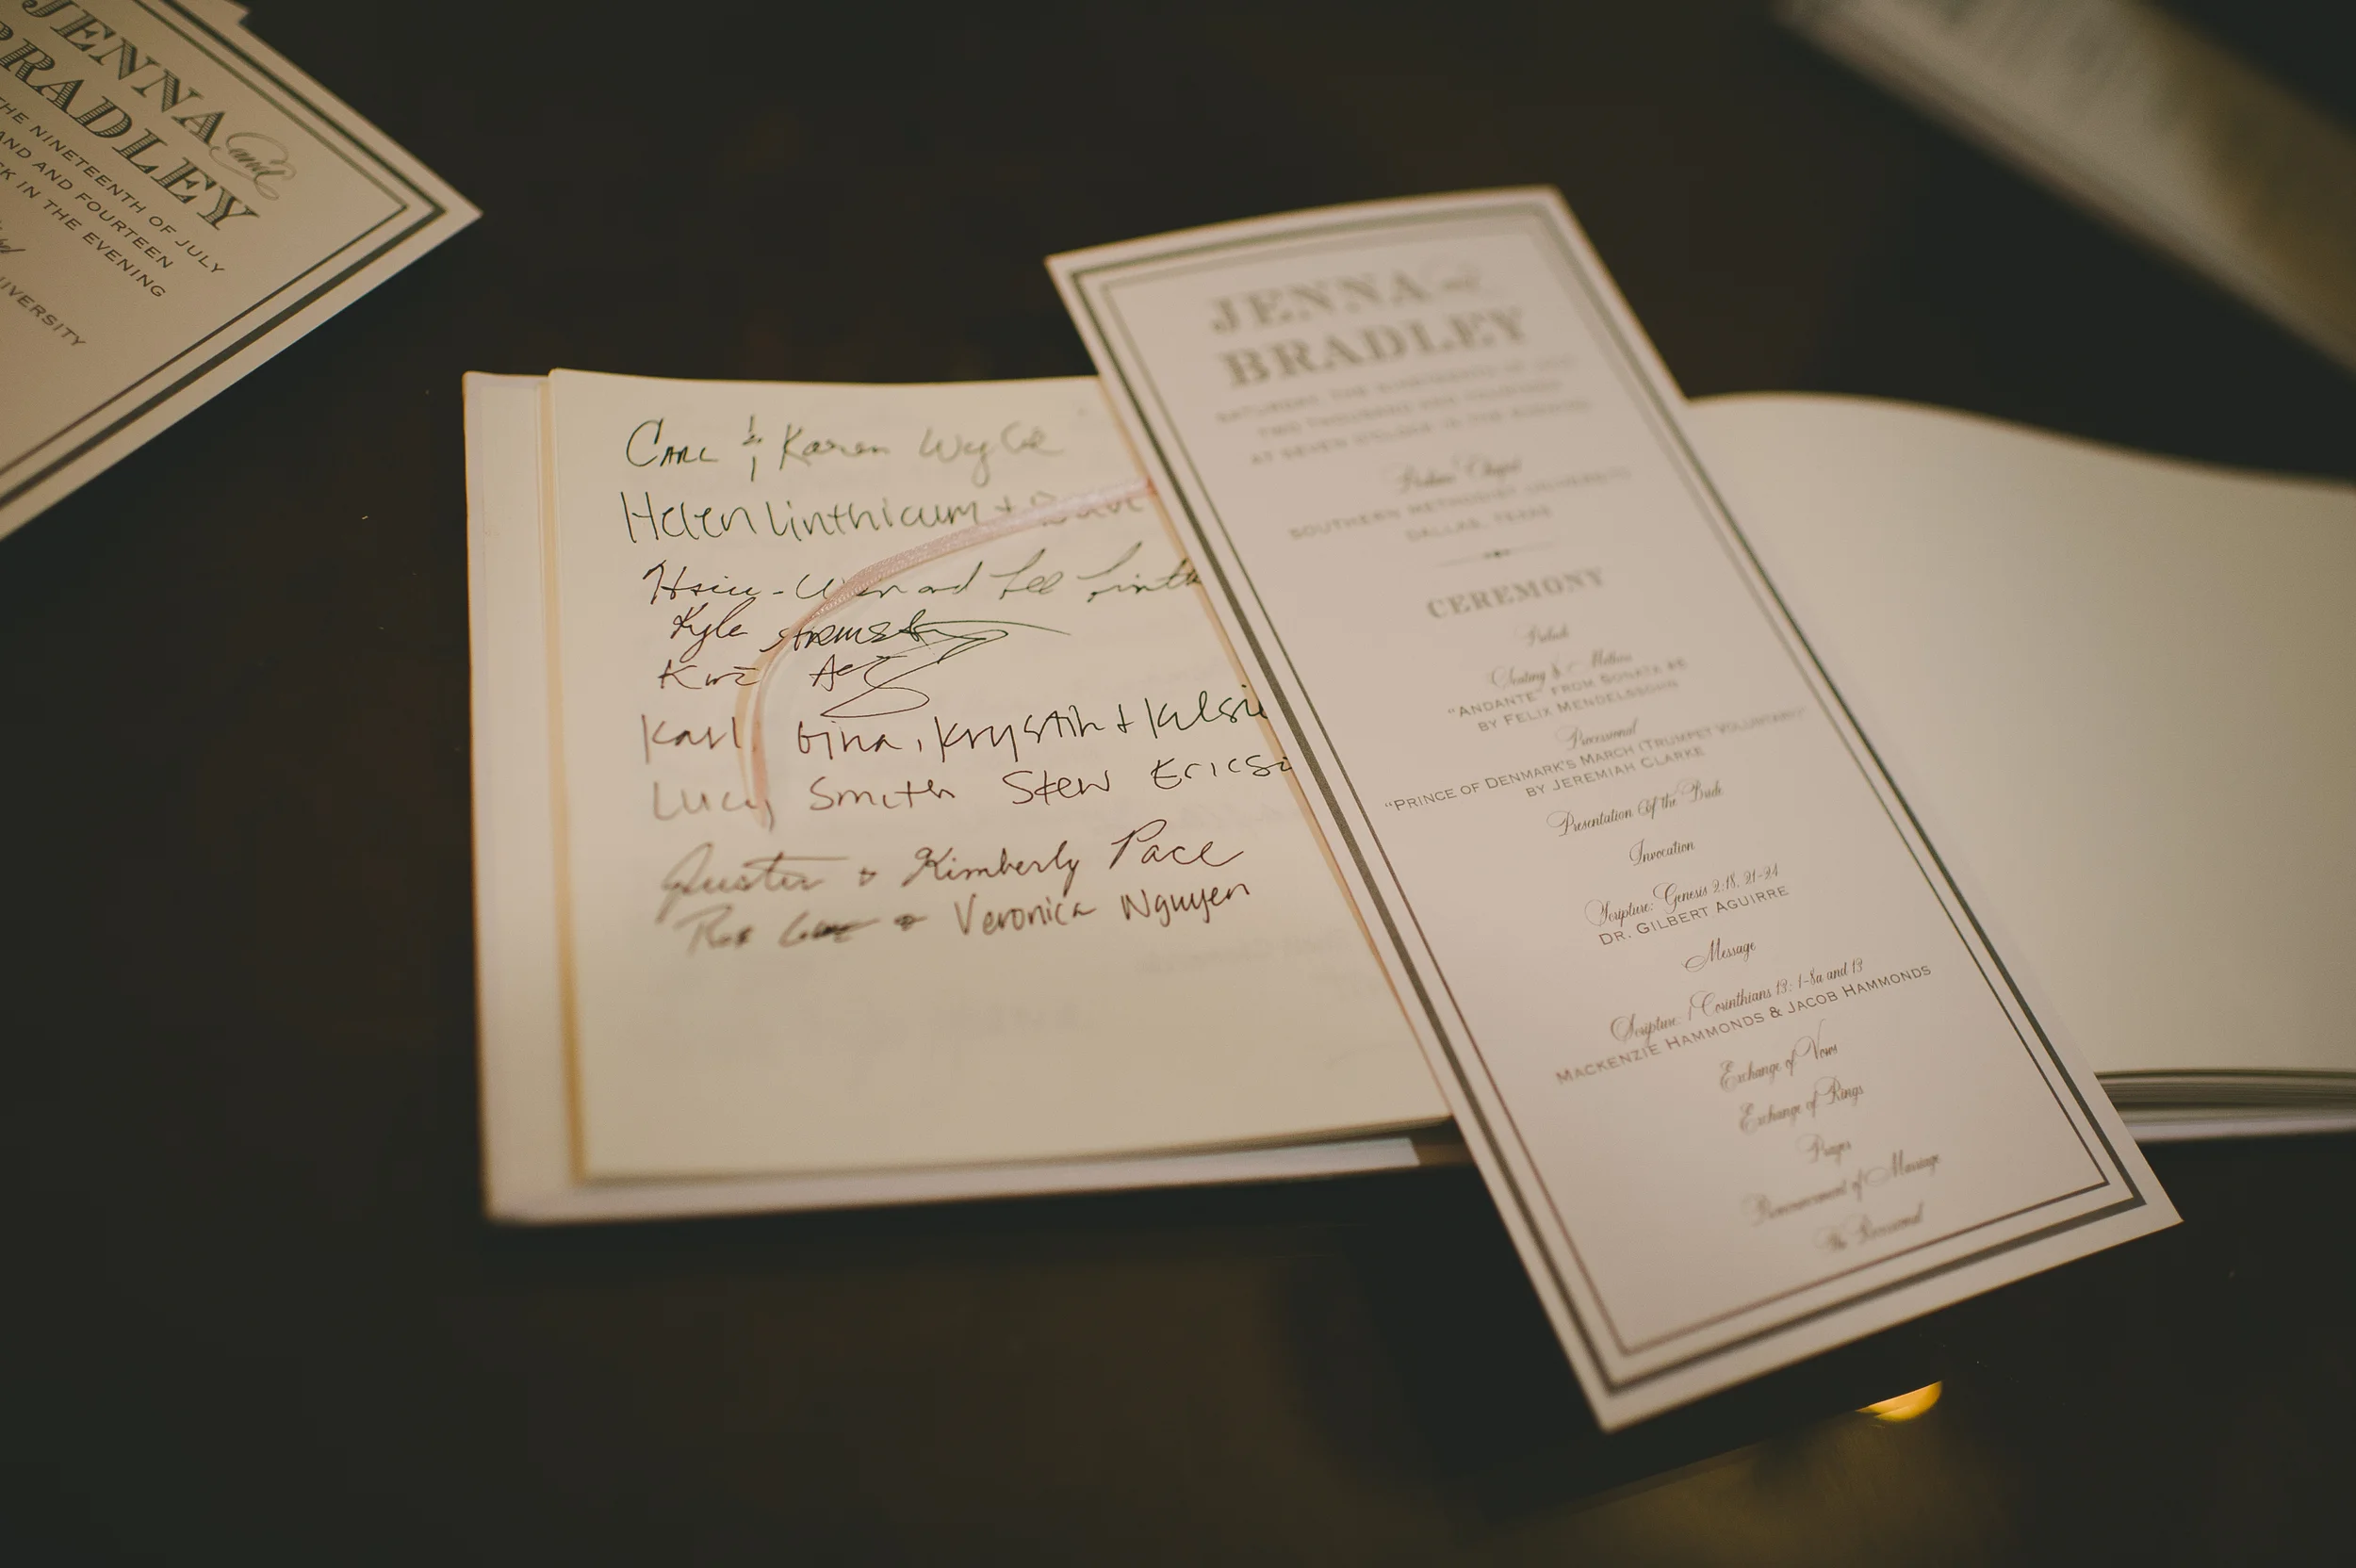 JENNA and
BRADLEY
THE NINETEENTH OF JULY
AND AND FOURTEEN
CK IN THE EVENING
IVERSITY
CARL & Karen Wylie
Helen Linthicum + Dave
Hsiu-Wen and Lee Linth
Kyle
Karl Gina, Krystin + Kelsie
Lucy Smith Stew Ericso
Justin & Kimberly Pace
& Veronica Nguyen
JENNA and
BRADLEY
SATURDAY, THE NINETEENTH OF JULY
TWO THOUSAND AND FOURTEEN
AT SEVEN O'CLOCK IN THE EVENING
Perkins Chapel
SOUTHERN METHODIST UNIVERSITY
DALLAS, TEXAS
CEREMONY
Prelude
Seating of Mothers
"ANDANTE" FROM SONATA #6
BY FELIX MENDELSSOHN
Processional
"PRINCE OF DENMARK'S MARCH (TRUMPET VOLUNTARY)"
BY JEREMIAH CLARKE
Presentation Of the Bride
Invocation
Scripture: Genesis 2:18, 21-24
DR. GILBERT AGUIRRE
Message
Scripture: 1 Corinthians 13: 1-8a and 13
MACKENZIE HAMMONDS & JACOB HAMMONDS
Exchange of Vows
Exchange of Rings
Prayer
Pronouncement of Marriage
The Recessional